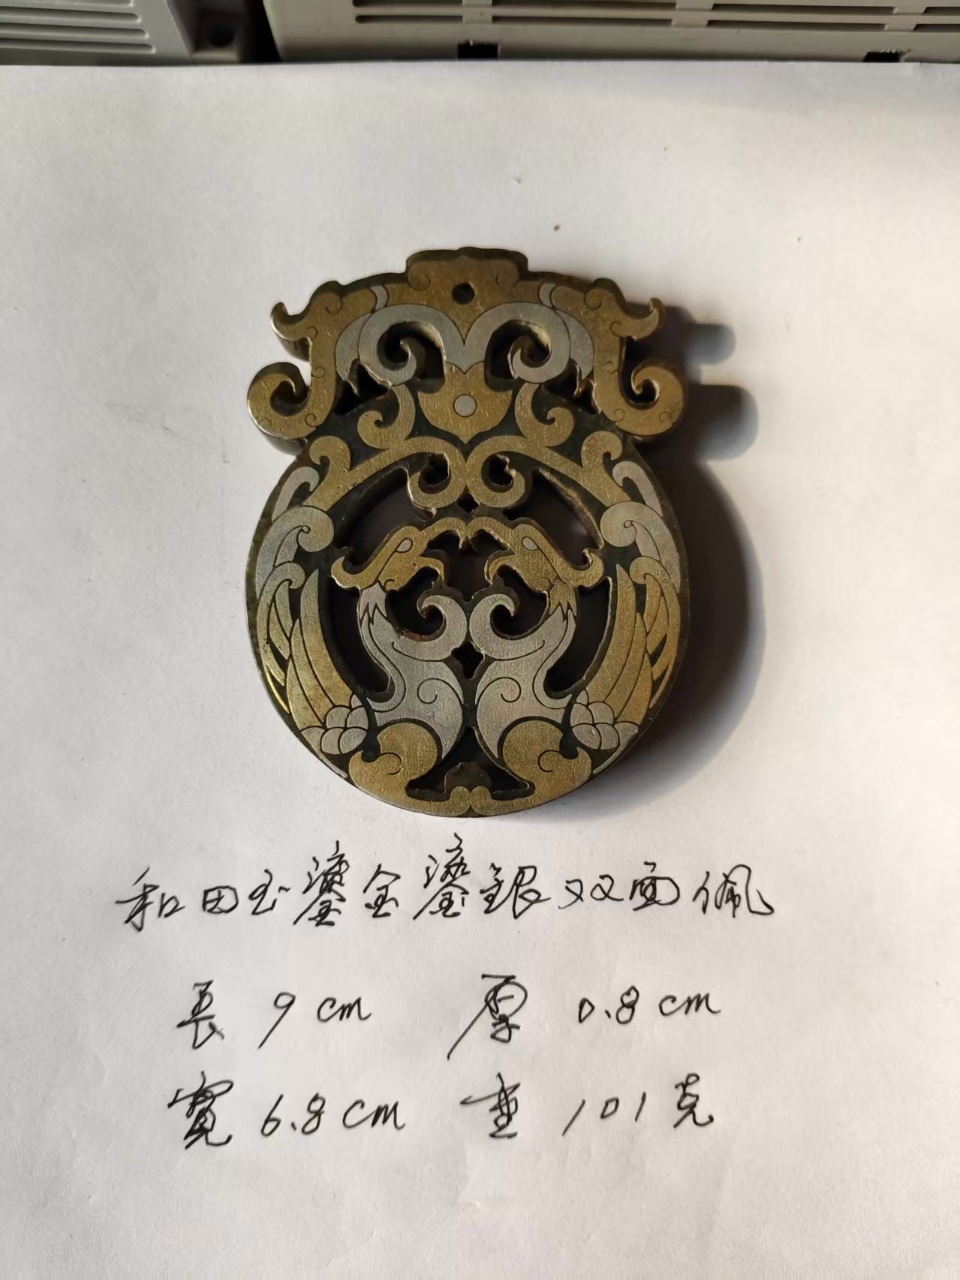 和田玉鎏金鎏銀双面佩
長 9 cm 厚 0.8 cm
寬 6.8 cm 重 101 克